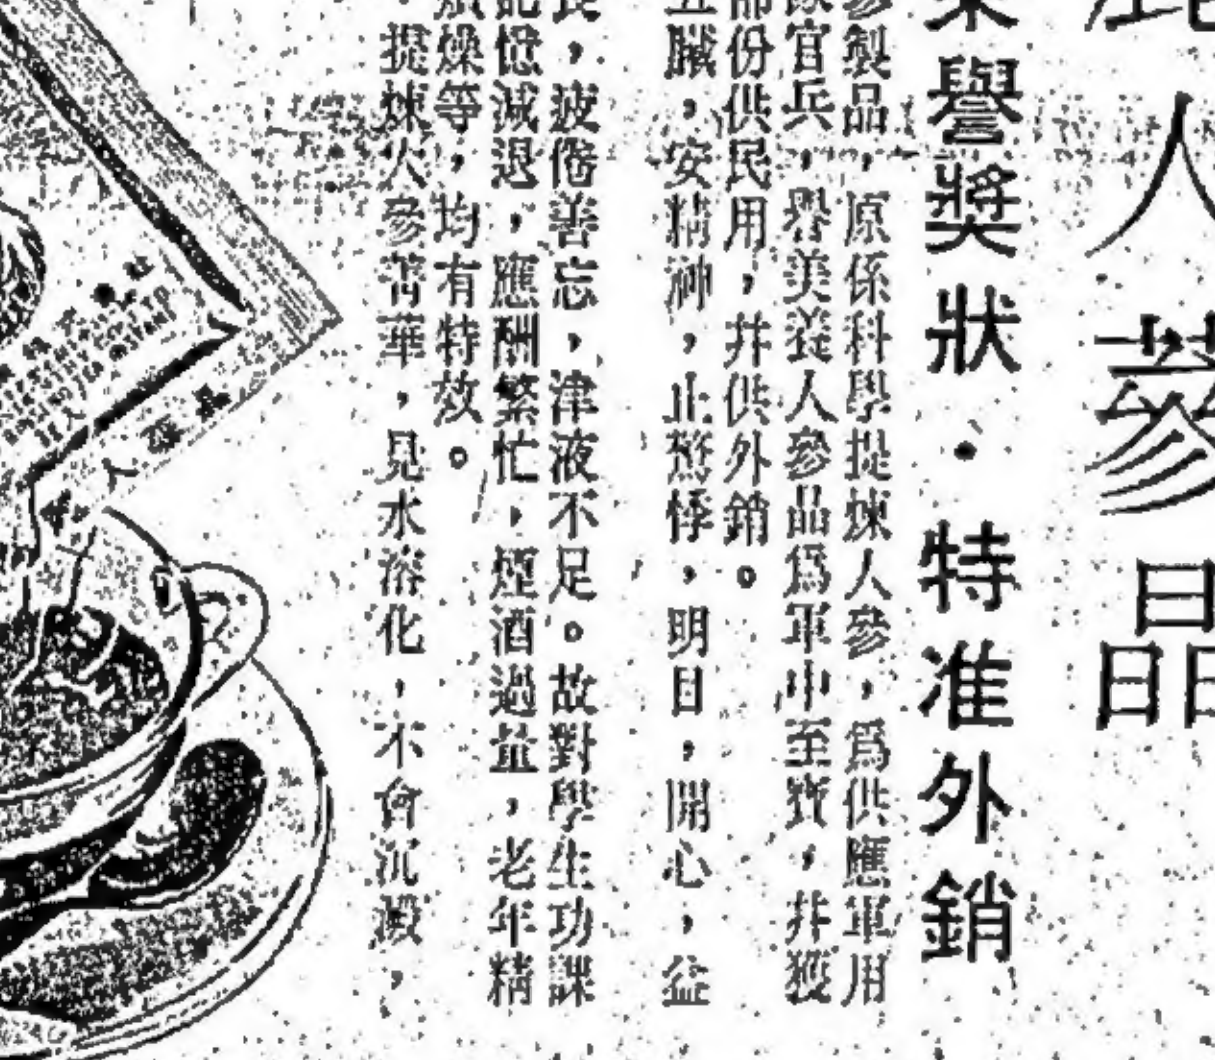 人蔘晶
譽獎狀・特准外銷
製品，原係科學提煉人參，爲供應軍用
官兵，譽美養人參品爲軍中至寶，并獲
部份供民用，并供外銷。
臟，安精神，止驚悸，明目，開心，益
，疲倦善忘，津液不足。故對學生功課
記憶減退，應酬繁忙，煙酒過量，老年精
燥等，均有特效。
提煉人參菁華，見水溶化，不會沉澱，